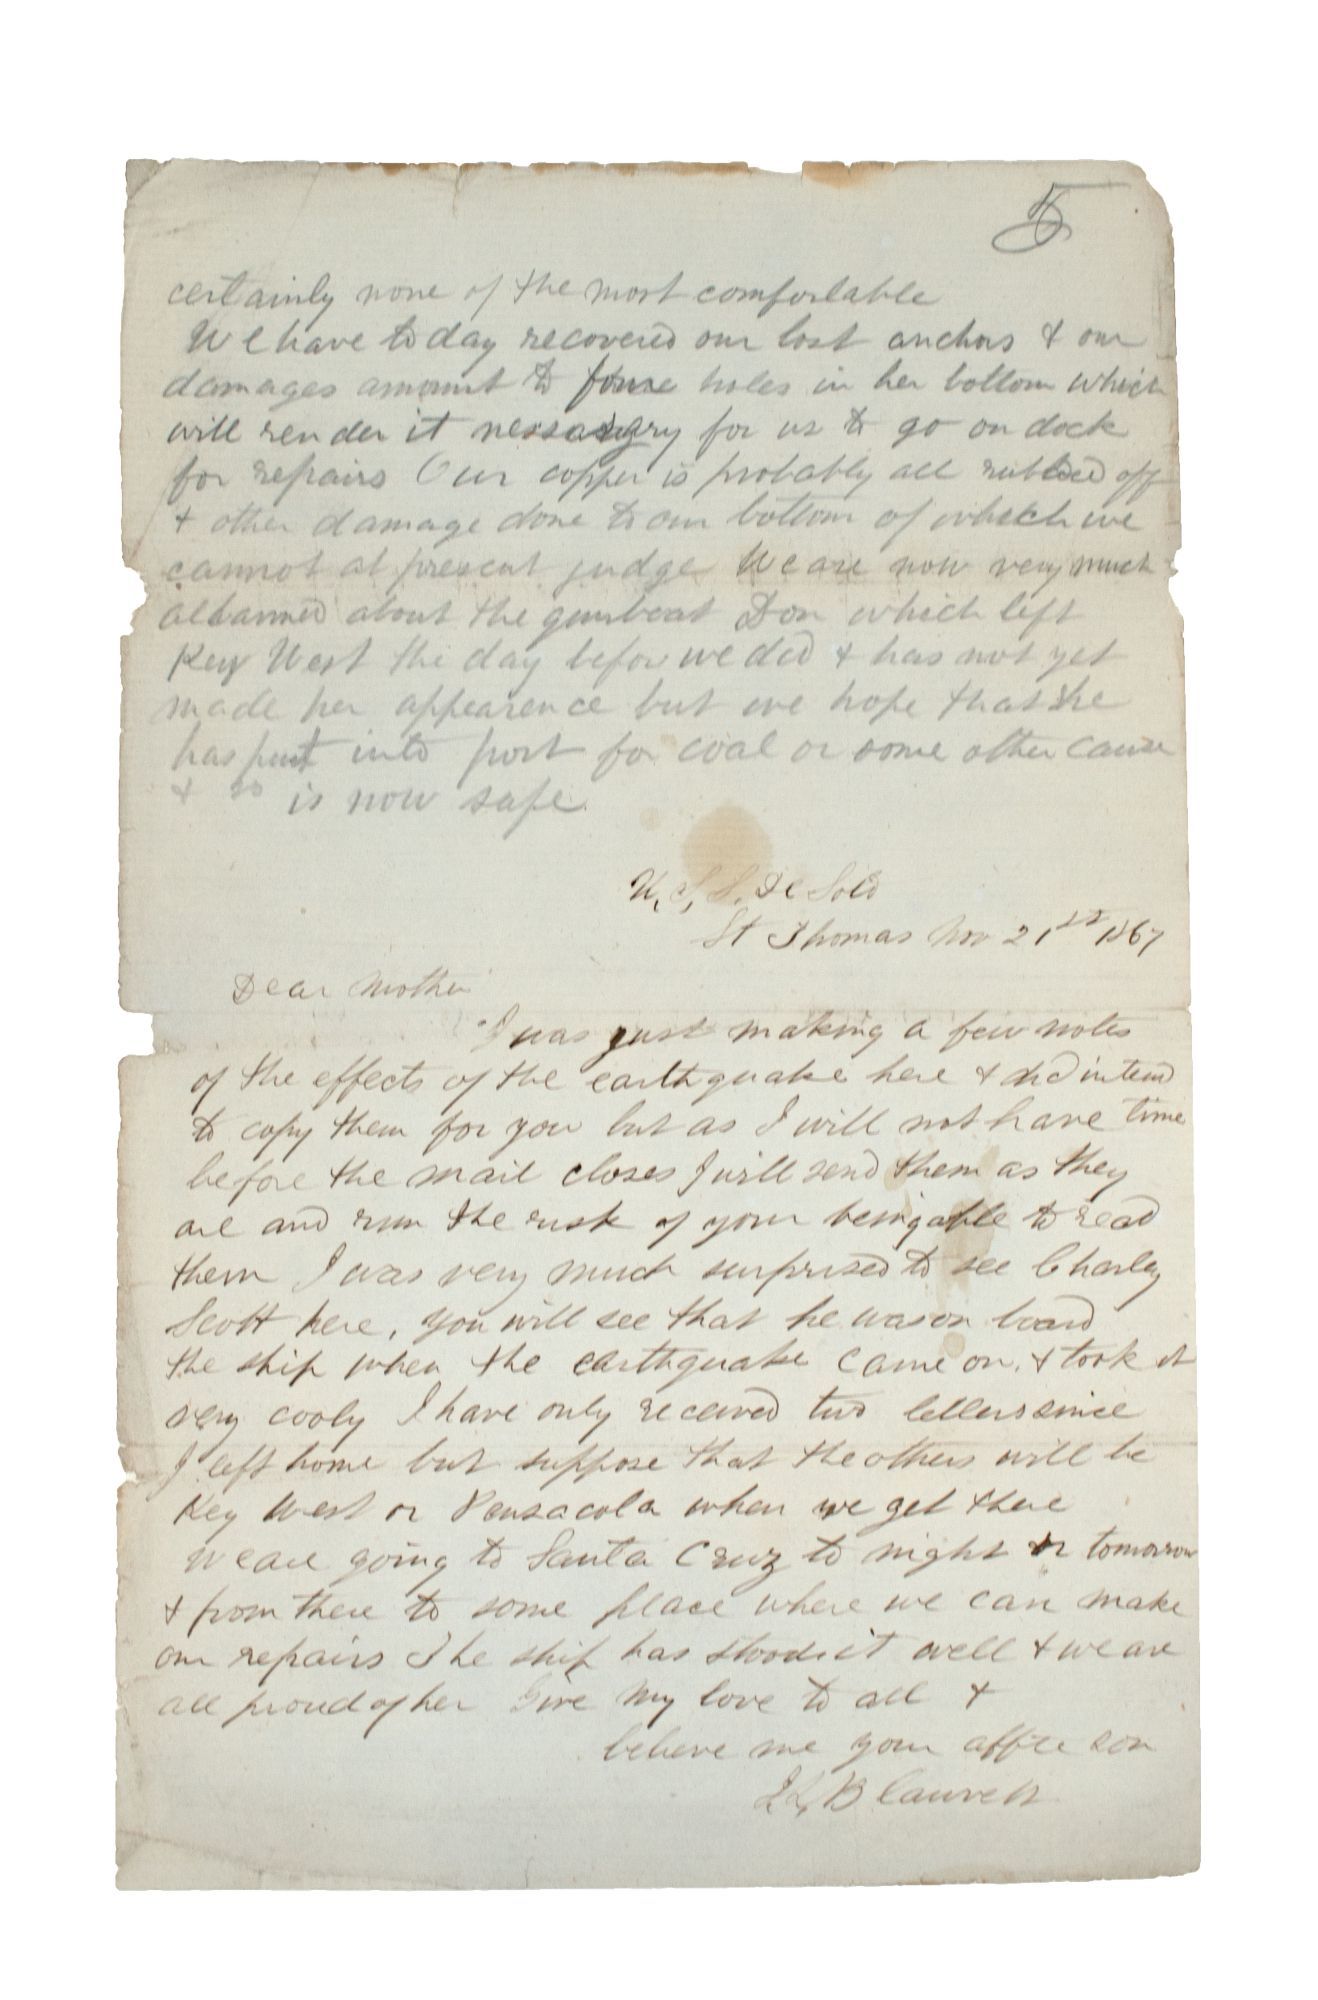 5
certainly none of the most comfortable
We have to day recovered our lost anchors & our
damages amount to four holes in her bottom which
will render it nessasary for us to go on dock
for repairs Our copper is probably all rubbed off
& other damage done to our bottom of which we
cannot at present judge We are now very much
allarmed about the gunboat Don which left
Key West the day before we did & has not yet
made her appearence but we hope that she
has put into port for coal or some other cause
& so is now safe
U. S. S. De Soto
St Thomas Nov 21st 1867
Dear Mother
I was just making a few notes
of the effects of the earthquake here & did intend
to copy them for you but as I will not have time
before the mail closes I will send them as they
are and run the risk of your being able to read
them I was very much surprised to see Charley
Scott here, you will see that he was on board
the ship when the earthquake came on, & took it
very cooly I have only received two letters since
I left home but suppose that the others will be
Key West or Pensacola when we get there
We are going to Santa Cruz to night or tomorrow
& from there to some place where we can make
our repairs The ship has stood it well & we are
all proud of her Give my love to all &
believe me your affte son
Blauvelt